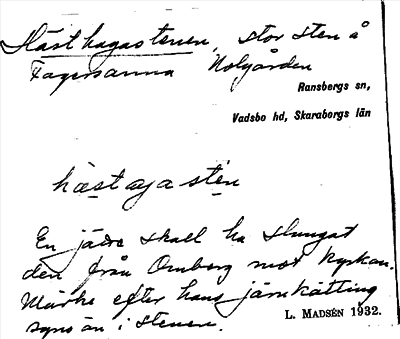 Hästhagastenen, stor sten å
Fagersanna Nolgården
Ransbergs sn,
Vadsbo hd, Skaraborgs län
hæstagasten
En jätte skall ha slungat
den från Ornberg mot kyrkan.
Märke efter hans järnkätting
syns än i stenen.
L. MADSÉN 1932.